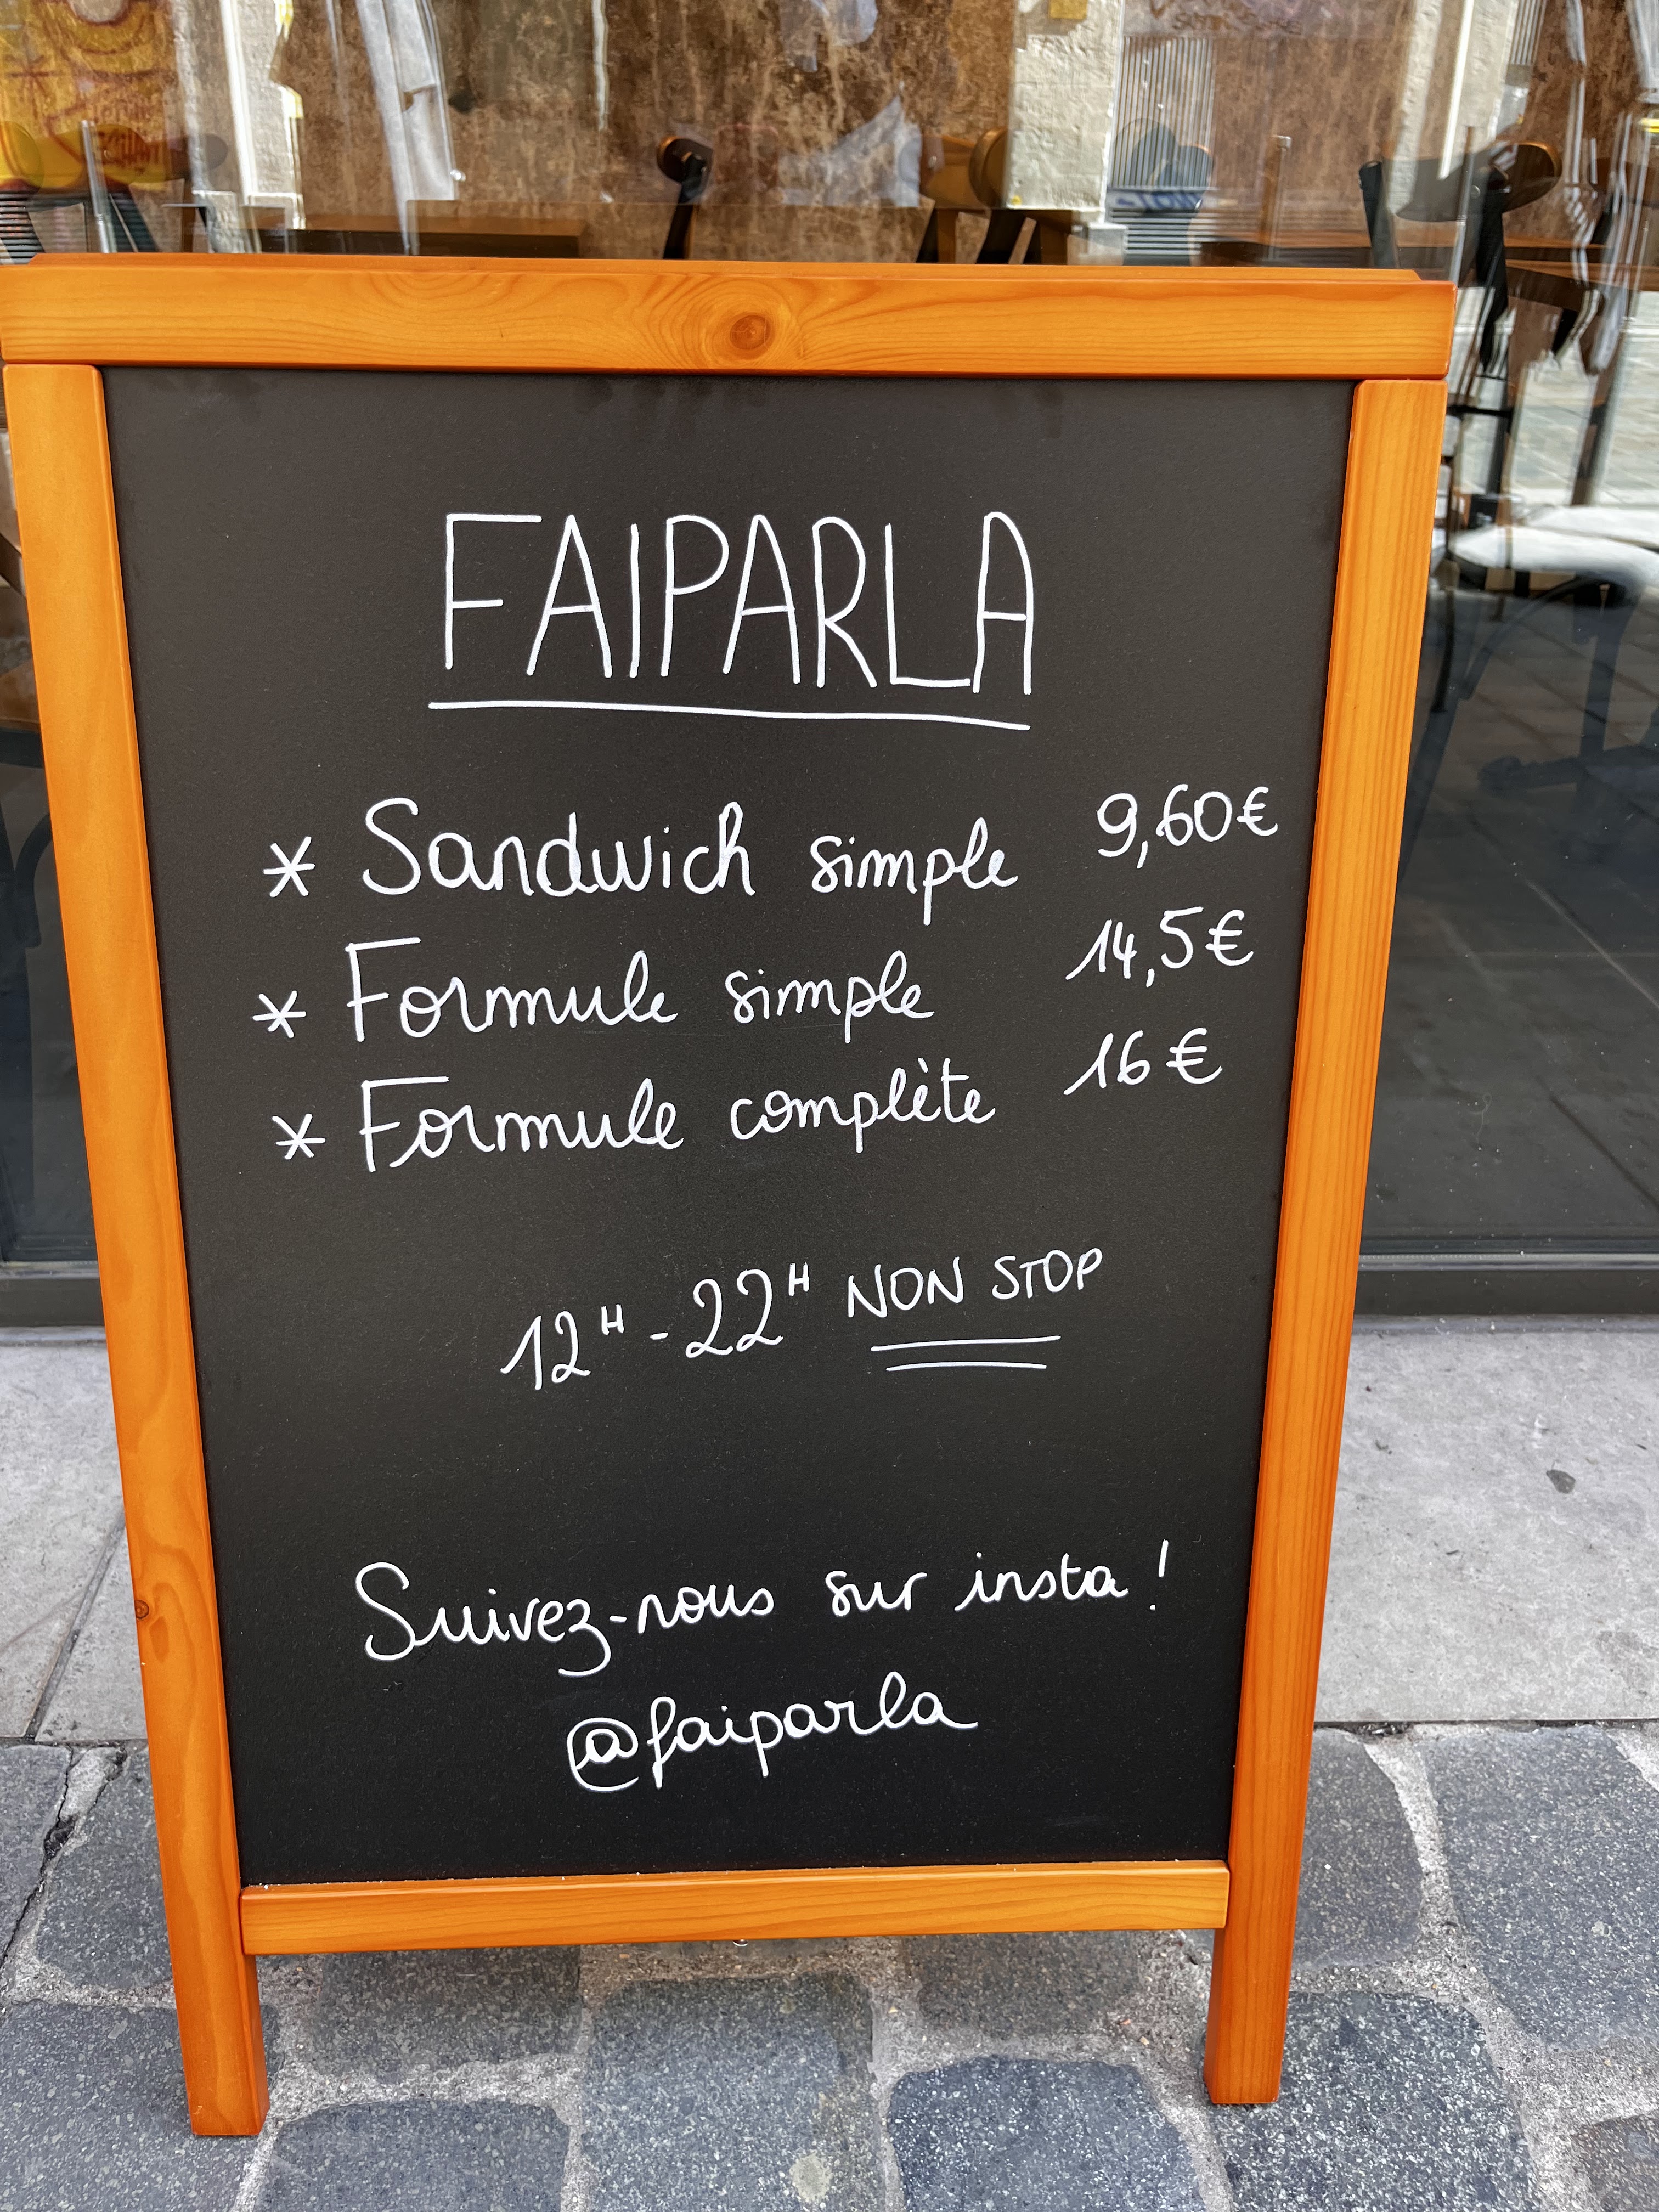 FAIPARLA
* Sandwich simple 9,60€
* Formule simple 14,5€
* Formule complète 16€
12H - 22H NON STOP
Suivez-nous sur insta !
@faiparla